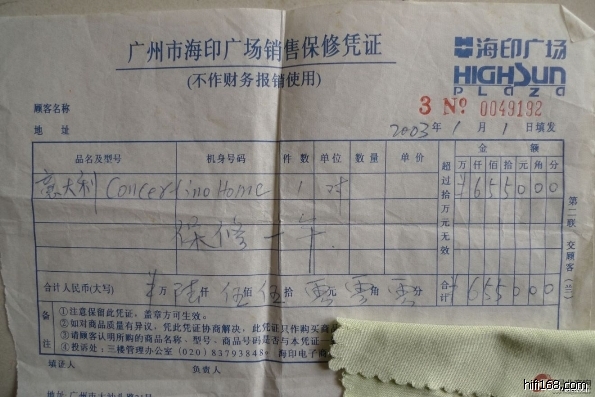 广州市海印广场销售保修凭证
(不作财务报销使用)
海印广场
HIGHSUN
PLAZA
顾客名称
3 № 0049192
地 址
2003年1月1日填发
品名及型号 机身号码 件数 单位 数量 单价 超过拾万元无效 金额
万仟佰拾元角分
意大利 Concertino Home 1 对 ¥655000
保修一年
第二联 交顾客(兰)
合计人民币(大写) 万陆仟伍佰伍拾零元零角零分 合计 ¥655000
备注
①注意保留此凭证,盖章方可生效。
②如对商品质量有异议,凭此凭证协商解决,此凭证只作购买商
③请顾客认明所购的商品名称、型号、商品号码是否与本凭证一
④投诉处:三楼管理办公室(020)83793848 海印电子商
填证人 负责人
hifi168.com